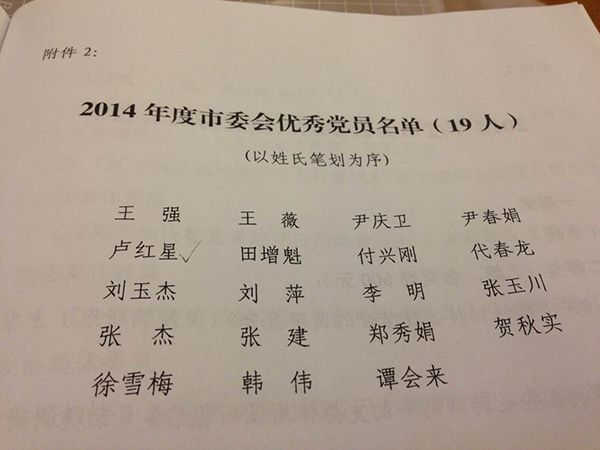 附件 2：
2014 年度市委会优秀党员名单（19 人）
（以姓氏笔划为序）
王 强 王 薇 尹庆卫 尹春娟
卢红星 田增魁 付兴刚 代春龙
刘玉杰 刘 萍 李 明 张玉川
张 杰 张 建 郑秀娟 贺秋实
徐雪梅 韩 伟 谭会来